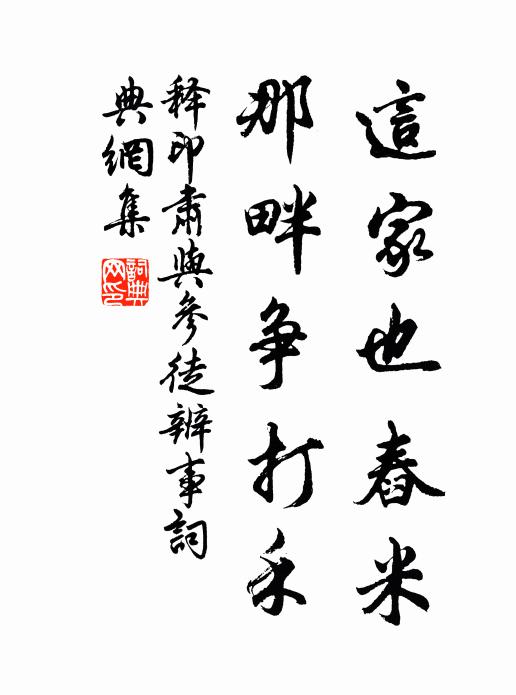 這家也舂米
那畔争打禾
释印肅與參徒辨事詞
典網集
詞典
网印